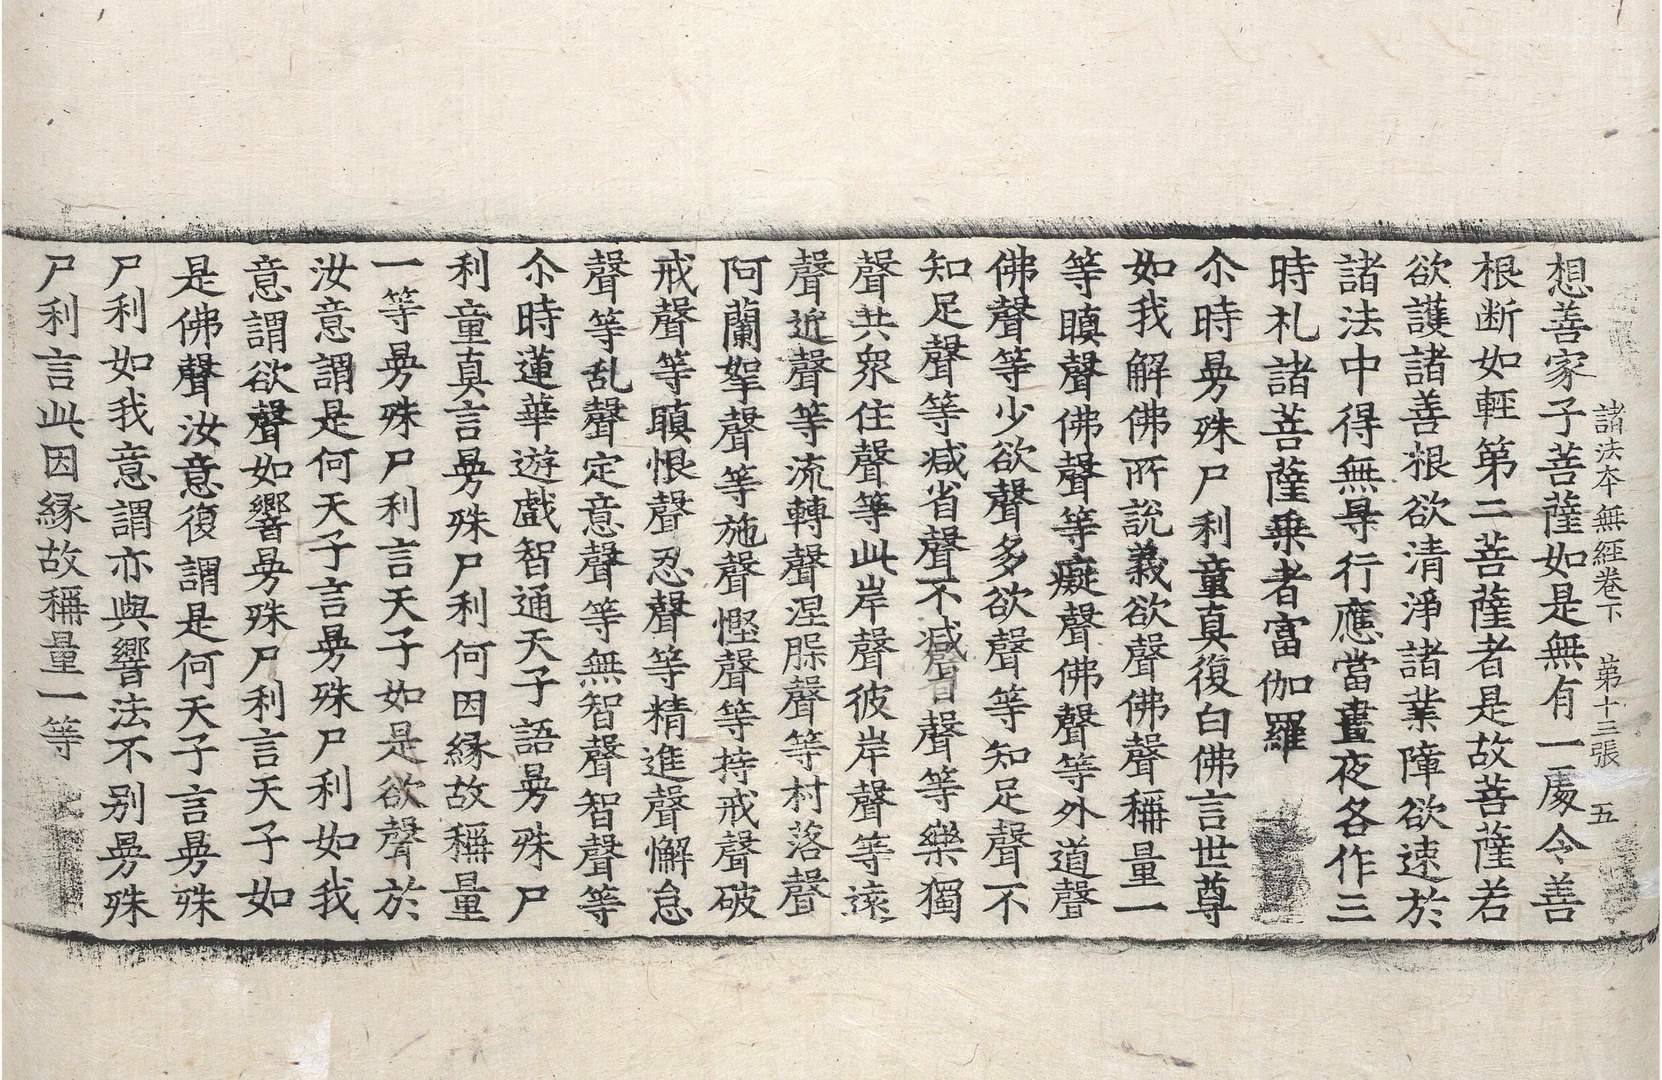 諸法本無經卷下　第十三張　五
想善家子菩薩如是無有一處令善
根断如輕第二菩薩者是故菩薩若
欲護諸善根欲清淨諸業障欲速於
諸法中得無㝵行應當晝夜各作三
時礼諸菩薩乗者富伽羅
尒時曼殊尸利童真復白佛言世尊
如我解佛所説義欲聲佛聲稱量一
等瞋聲佛聲等癡聲佛聲等外道聲
佛聲等少欲聲多欲聲等知足聲不
知足聲等减省聲不减省聲等樂獨
聲共衆住聲等此岸聲彼岸聲等遠
聲近聲等流轉聲涅槃聲等村落聲
阿蘭拏聲等施聲慳聲等持戒聲破
戒聲等瞋恨聲忍聲等精進聲懈怠
聲等乱聲定意聲等無智聲智聲等
尒時蓮華遊戲智通天子語曼殊尸
利童真言曼殊尸利何因縁故稱量
一等曼殊尸利言天子如是欲聲於
汝意謂是何天子言曼殊尸利如我
意謂欲聲如響曼殊尸利言天子如
是佛聲汝意復謂是何天子言曼殊
尸利如我意謂亦與響法不别曼殊
尸利言此因縁故稱量一等